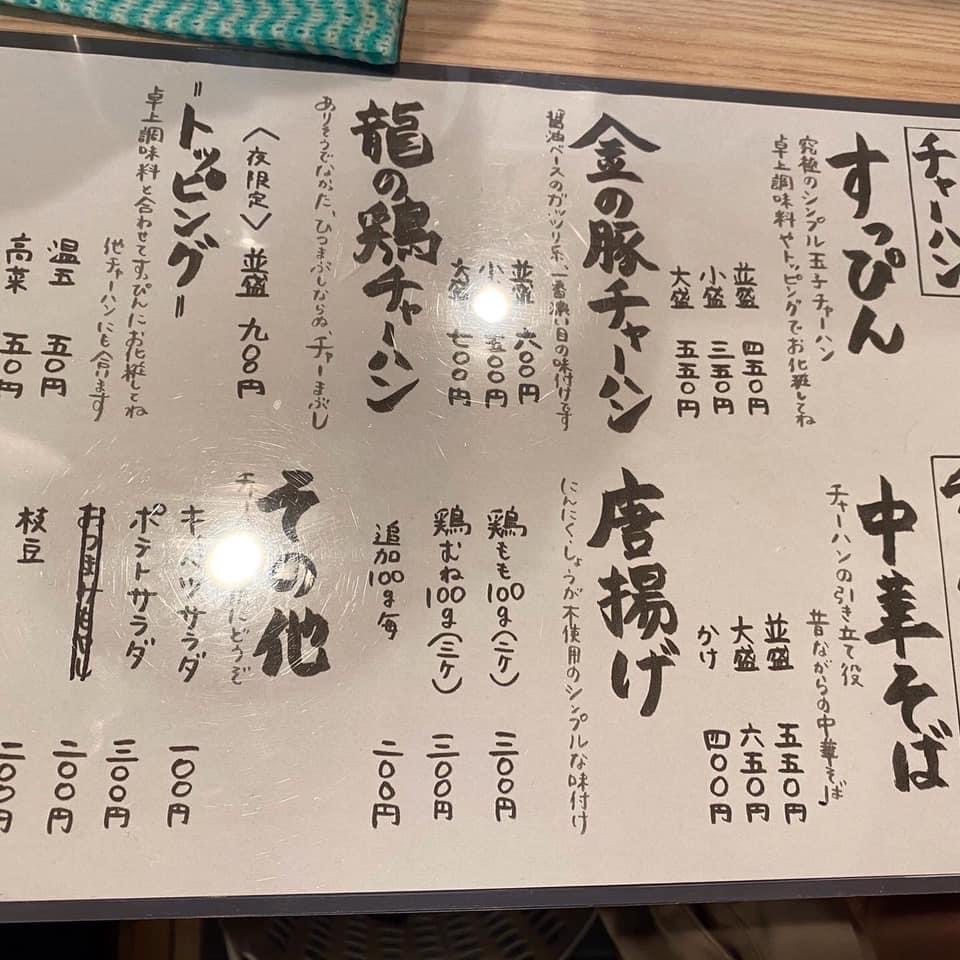 チャーハン
すっぴん
究極のシンプル玉子チャーハン
卓上調味料やトッピングでお化粧してね
並盛 四五〇円
小盛 三五〇円
大盛 五五〇円
金の豚チャーハン
醤油ベースのガッツリ系、一番濃い目の味付けです
並盛 六〇〇円
小 五〇〇円
大盛 七〇〇円
龍の鶏チャーハン
ありそうでなかった、ひつまぶしならぬ、チャーまぶし
〈夜限定〉 並盛 九〇〇円
=トッピング=
卓上調味料と合わせてすっぴんにお化粧してね
他チャーハンにも合います
温玉 五〇円
高菜 五〇円
中華そば
チャーハンの引き立て役
昔ながらの中華そば」
並盛 五五〇円
大盛 六五〇円
かけ 四〇〇円
唐揚げ
にんにくしょうが不使用のシンプルな味付け
鶏もも100g(二ケ) 三〇〇円
鶏むね100g(三ケ) 三〇〇円
追加100g毎 二〇〇円
その他
チャー にどうぞ
キャベツサラダ 一〇〇円
ポテトサラダ 三〇〇円
二〇〇円
枝豆 二〇〇円